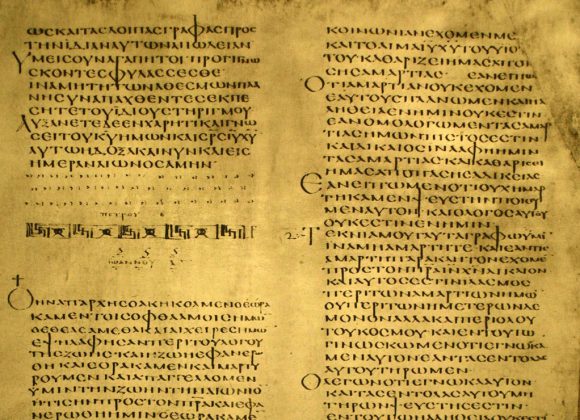 ωϲκαιταϲλοιπαϲγραφαϲπροϲ
τηνιδιαναυτωναπωλειαν
Υμειϲουναγαπητοιπρογινω
ϲκοντεϲφυλαϲϲεϲθε
ιναμητητωναθεϲμωνπλα
νηϲυναπαχθεντεϲεκπε
ϲητετουιδιουϲτηριγμου
Αυξανετεδεενχαριτικαιγνω
ϲειτουκ̅υ̅ημωνκαιϲρ̅ϲ̅ι̅υ̅χ̅υ̅
αυτωηδοξακαινυνκαιειϲ
ημεραναιωνοϲαμην
πετρου β
ιωαννου α
Οηναπαρχηϲοακηκοαμενοεωρα
καμεντοιϲοφθαλμοιϲημω
οεθεαϲαμεθακαιαιχειρεϲημω
εψηλαφηϲανπεριτουλογου
τηϲζωηϲκαιηζωηεφανερω
θηκαιεορακαμενκαιμαρτυ
ρουμενκαιαπαγγελομεν
υμιντηνζωηντηναιωνιο
ητιϲηνπροϲτονπ̅ρ̅α̅καιεφα
νερωθηημινοεωρακαμε
κοινωνιανεχομενμε
καιτουαιματοϲιυχυτουυιου
τουκαθαριζειημαϲαποπα
ϲηϲαμαρτιαϲ εανειπω
Οτιαμαρτιανουκεχομεν
εαυτουϲπλανωμενκαιηα
ληθειαενημινουκεϲτιν
εανομολογωμενταϲαμαρ
τιαϲημωνπιϲτοϲεϲτιν
καιδικαιοϲινααφηημιν
ταϲαμαρτιαϲκαικαθαριϲη
ημαϲαποπαϲηϲαδικειαϲ
Εανειπωμενοτιουχημαρ
τηκαμενψευϲτηνποιου
μεναυτονκαιολογοϲαυτου
ουκεϲτινενημιν
Τεκνιαμουταυταγραφωυμι
ιναμηαμαρτητεκαιεαντιϲ
αμαρτηπαρακλητονεχομε
προϲτονπ̅ρ̅α̅ι̅ν̅χ̅ν̅δικαιον
καιαυτοϲεϲτινιλαϲμοϲ
περιτωναμαρτιωνημω
ουπεριτωνημετερωνδε
μονοναλλακαιπεριολου
τουκοϲμουκαιεντουτω
γινωϲκομενοτιεγνωκα
μεναυτονεανταϲεντολαϲ
αυτουτηρωμεν
Ολεγωνοτιεγνωκααυτον
καιταϲεντολαϲαυτουμη
τηρωνψευϲτηϲεϲτιν